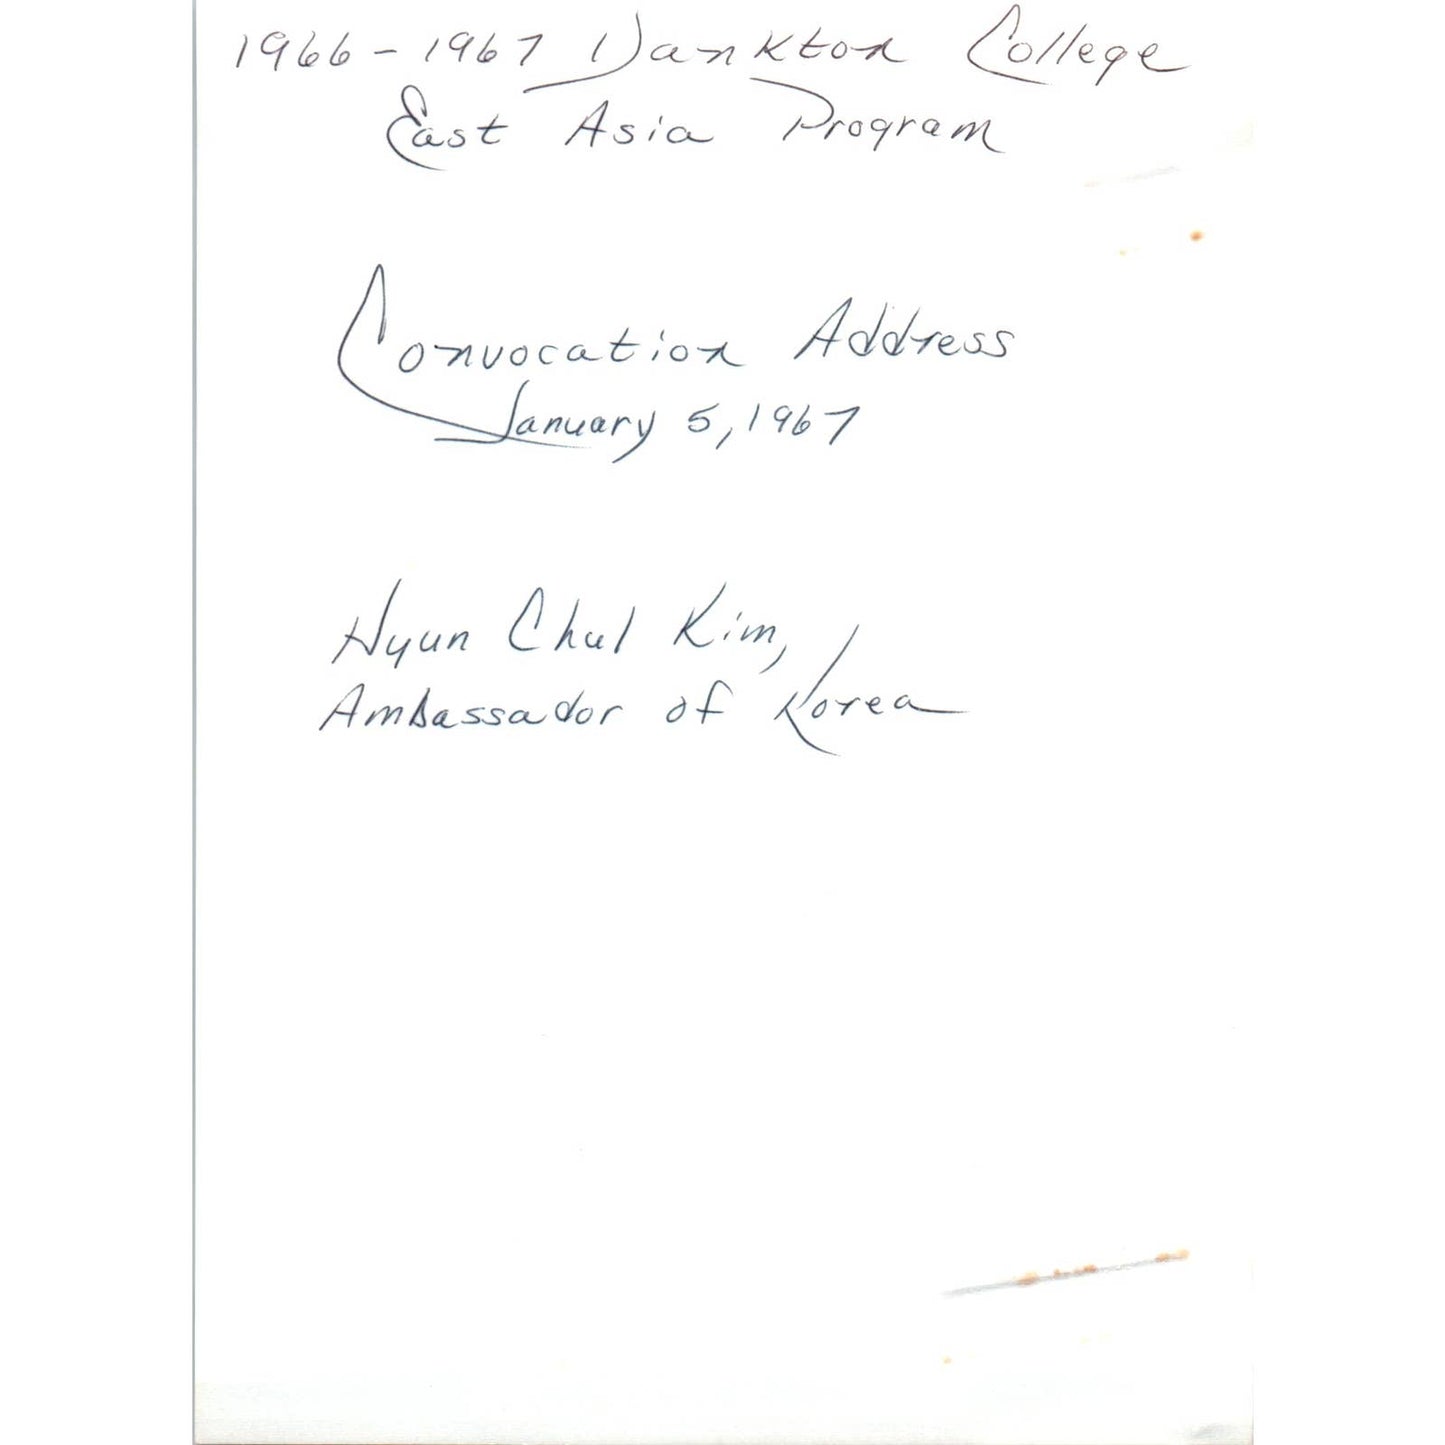 1966-1967 Yankton College
East Asia Program
Convocation Address
January 5, 1967
Hyun Chul Kim,
Ambassador of Korea